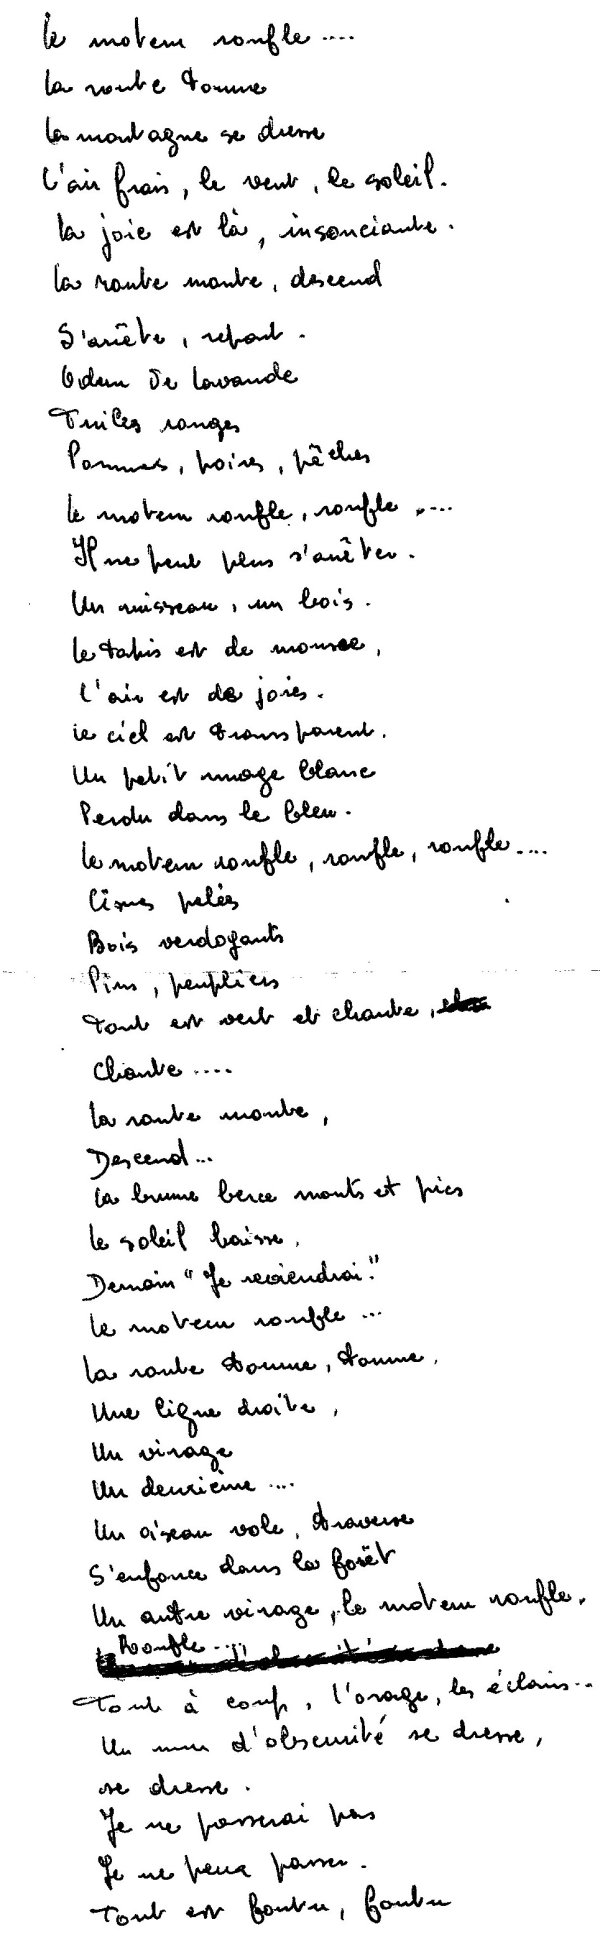 Le moteur ronfle....
La route tourne
La montagne se dresse
L'air frais, le vent, le soleil.
La joie est là, insouciante.
La route monte, descend
S'arrête, repart.
Odeur de lavande
Tuiles rouges
Pommes, poires, pêches
Le moteur ronfle, ronfle ....
Il ne peut plus s'arrêter.
Un ruisseau, un bois.
Le tapis est de mousse,
L'air est de joies.
Le ciel est transparent.
Un petit nuage blanc
Perdu dans le bleu.
Le moteur ronfle, ronfle, ronfle....
Cimes pelées
Bois verdoyants
Pins, peupliers
Tout est vert et chante,
Chante....
La route monte,
Descend...
La brume berce monts et pics
Le soleil baisse,
Demain "Je reviendrai."
Le moteur ronfle...
La route tourne, tourne,
Une ligne droite,
Un virage
Un deuxième....
Un oiseau vole, traverse
S'enfonce dans la forêt
Un autre virage, le moteur ronfle,
Ronfle....
Tout à coup, l'orage, les éclairs...
Un mur d'obscurité se dresse,
se dresse.
Je ne passerai pas
Je ne peux passer.
Tout est foutu, foutu